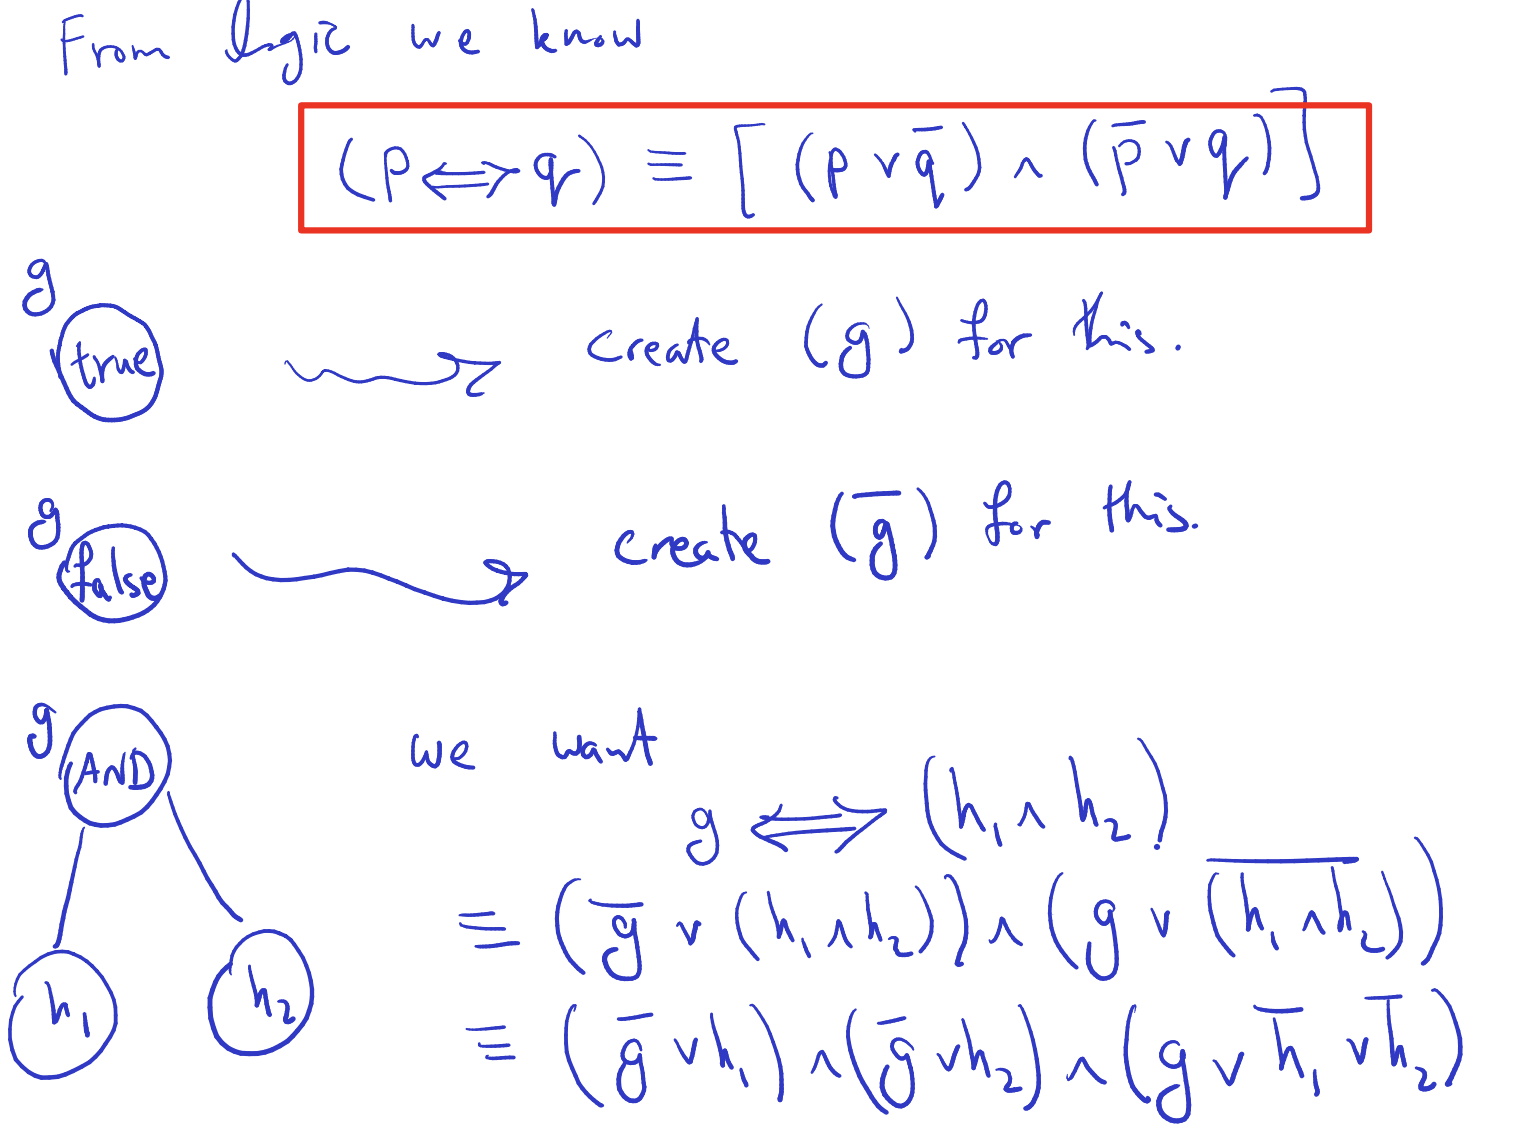 From logic we know
(p ⟺ q) ≡ [(p ∨ q̅) ∧ (p̅ ∨ q)]
g
true
create (g) for this.
g
false
create (g̅) for this.
g
AND
we want
g ⟺ (h₁ ∧ h₂)
≡ (g̅ ∨ (h₁ ∧ h₂)) ∧ (g ∨ \overline{(h₁ ∧ h₂)})
h₁ h₂
≡ (g̅ ∨ h₁) ∧ (g̅ ∨ h₂) ∧ (g ∨ h̅₁ ∨ h̅₂)